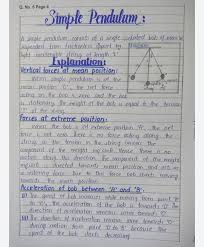 Q. No. 6 Page 4
Simple Pendulum:
A simple pendulum consists of a single isolated bob of mass 'm'
suspended from frictionless support by
light inextensible string of length 'l'.
Explanation:
Vertical forces at mean position:
When simple pendulum is at the
mean position 'O', the net force
acting on the bob is zero and the bob
is stationary. The weight of the bob is equal to the tension
of the string.
Forces at extreme position:
When the bob is at extreme position 'A', the net
force is not zero. there is no force acting along the
string as the tension in the string cancels the
component of the weight. Hence there is no
motion along this direction. The component of the weight
is directed towards mean position and acts as
a restoring force. Due to this force bob starts moving
towards the mean position.
Acceleration of bob between 'A' and 'B':
(i) The speed of bob increases while moving from point 'A'
to 'O'. the acceleration of the bob is towards 'O'. The
direction of acceleration remains
(ii) The direction of acceleration remains towards 'O'
during motion from point 'O' to 'B' because the
speed of the bob starts decreasing.